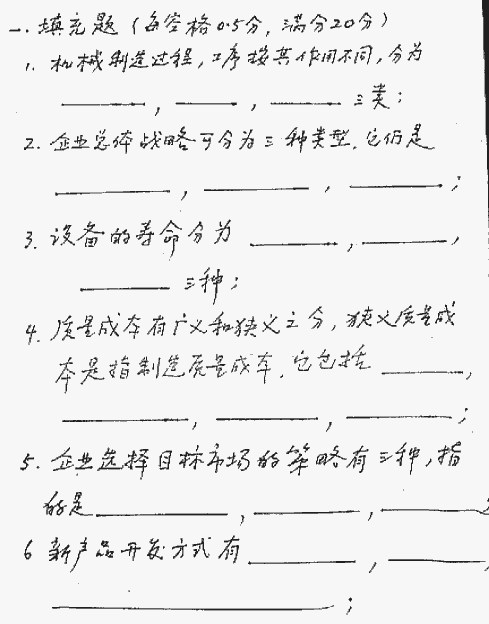 一. 填充题 (每空格0.5分, 满分20分)
1. 机械制造过程, 工序按其作用不同, 分为
______, ______, ______三类;
2. 企业总体战略可分为三种类型, 它们是
______, ______, ______;
3. 设备的寿命分为______, ______,
______三种;
4. 质量成本有广义和狭义之分, 狭义质量成
本是指制造质量成本, 它包括______,
______, ______, ______;
5. 企业选择目标市场的策略有三种, 指
的是______, ______, ______
6 新产品开发方式有______, ______,
______;